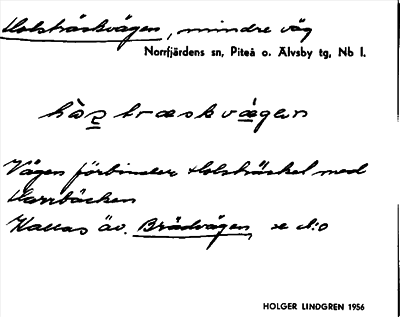 Holsträskvägen, mindre väg
Norrfjärdens sn, Piteå o. Älvsby tg, Nb l.
Vägen förbinder Holsträsket med
Harrbäcken
Kallas äv. Brädvägen, se d:o
HOLGER LINDGREN 1956